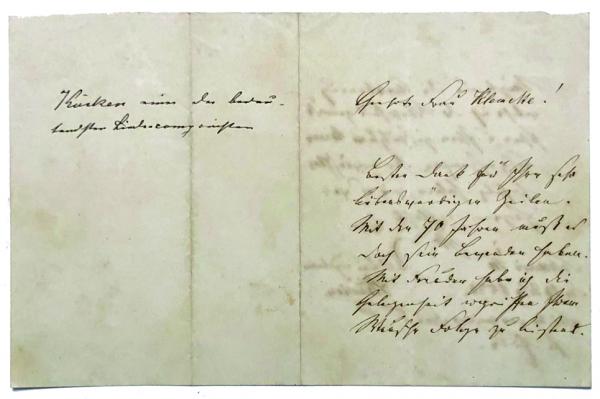 Kücken einer der bedeu-
tendsten Liedercomponisten
Geehrte Frau Klencke!
Besten Dank für Ihre sehr
liebenswürdigen Zeilen.
Mit den 70 Jahren muß es
doch sein Bewenden haben.
Mit Freuden habe ich die
Gelegenheit ergriffen Ihrem
Wunsche Folge zu leisten.